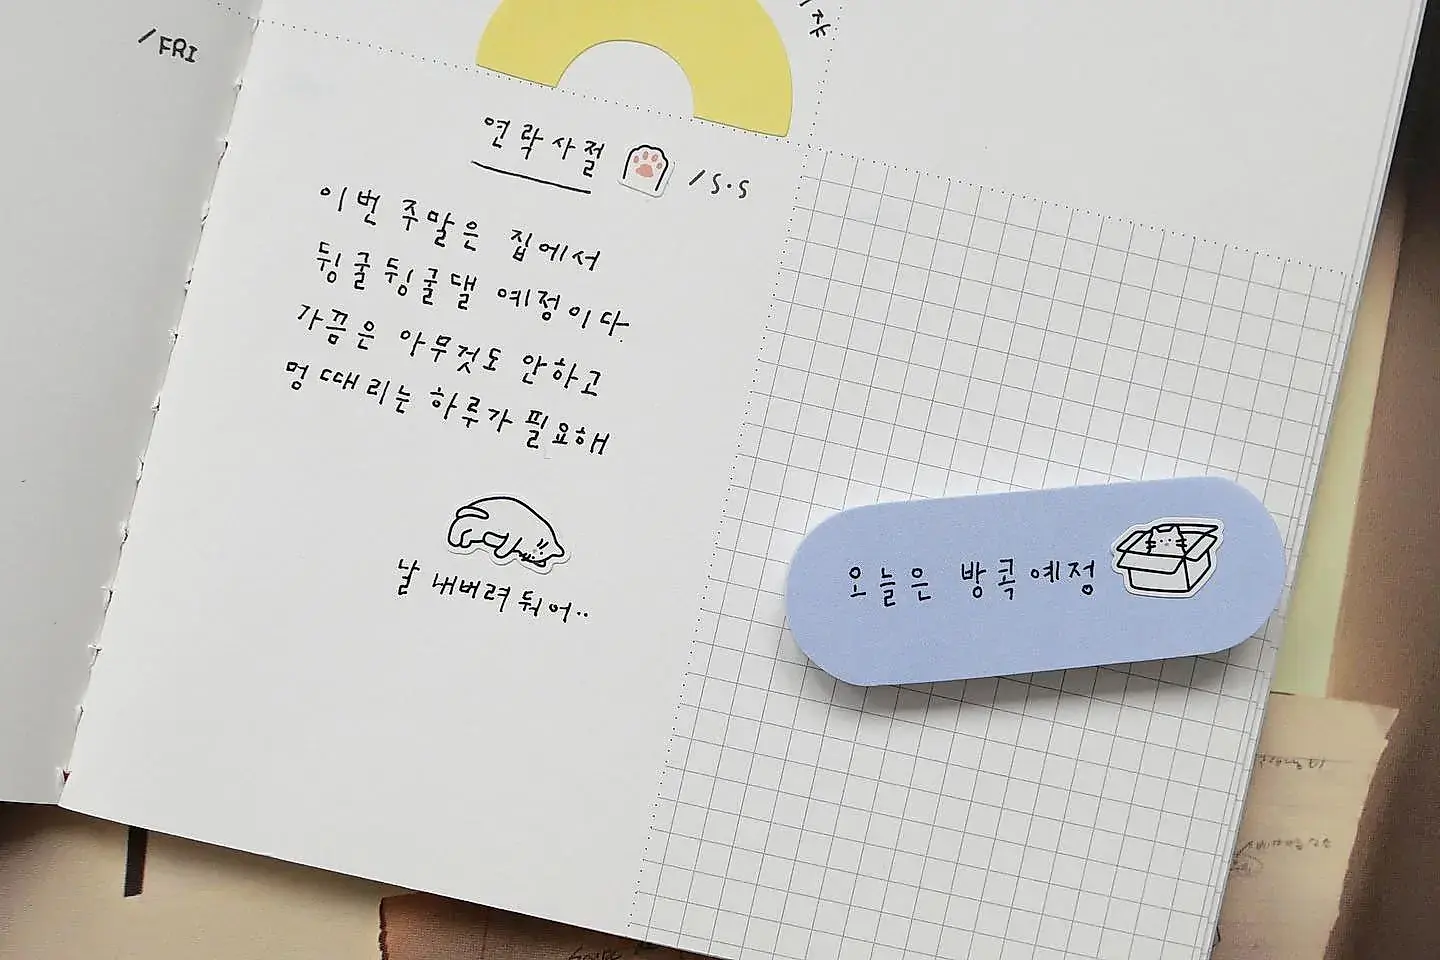 /FRI
연락사절 /S.S
이번 주말은 집에서
뒹굴뒹굴댈 예정이다.
가끔은 아무것도 안하고
멍 때리는 하루가 필요해
날 내버려둬어..
오늘은 방콕예정